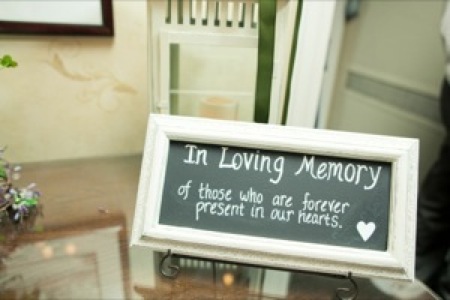 In Loving Memory
of those who are forever
present in our hearts.